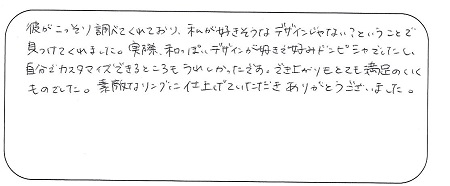 彼がこっそり調べてくれており、私が好きそうなデザインじゃない?ということで
見つけてくれました。実際、和っぽいデザインが好きで好みドンピシャでしたし、
自分でカスタマイズできるところもうれしかったです。でき上がりもとても満足のいく
ものでした。素敵なリングに仕上げていただきありがとうございました。